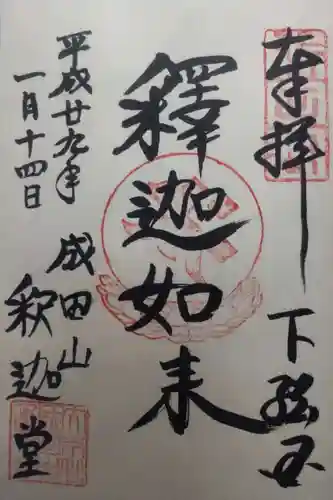 奉拝 下総国
釋迦如来
平成廿九年
一月十四日
成田山
釈迦堂